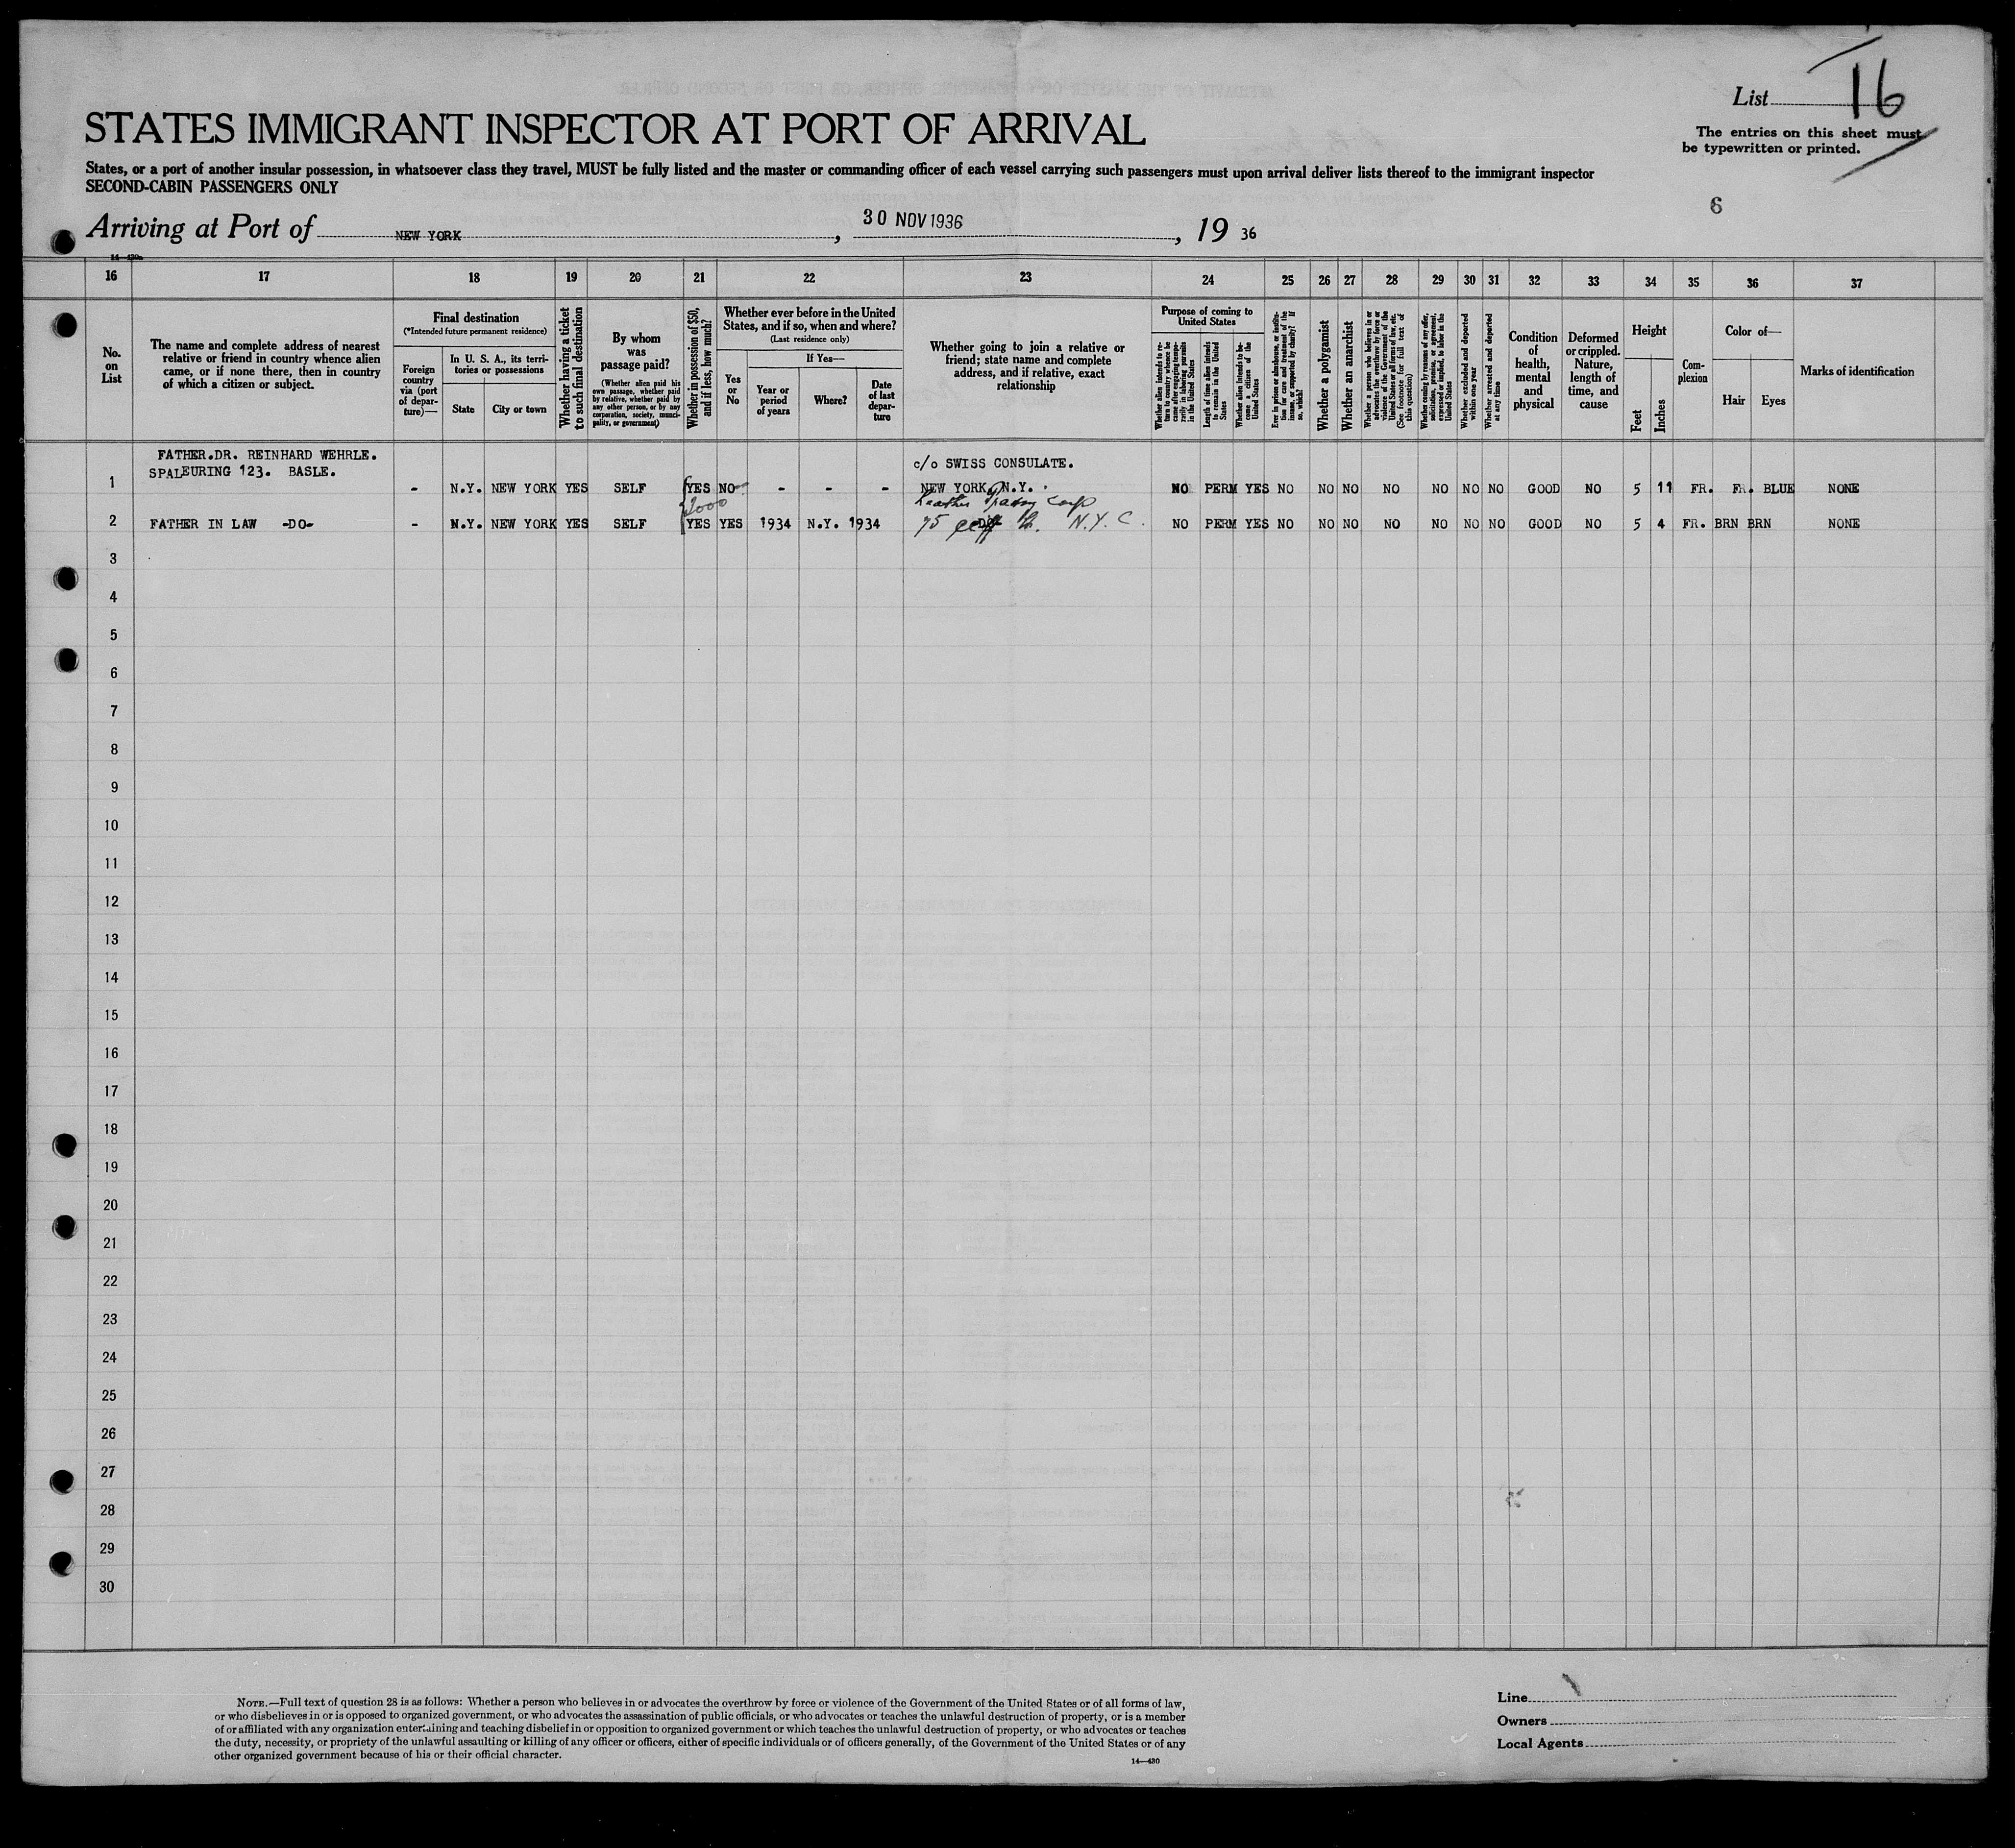 List 16
The entries on this sheet must
be typewritten or printed.
STATES IMMIGRANT INSPECTOR AT PORT OF ARRIVAL
States, or a port of another insular possession, in whatsoever class they travel, MUST be fully listed and the master or commanding officer of each vessel carrying such passengers must upon arrival deliver lists thereof to the immigrant inspector
SECOND-CABIN PASSENGERS ONLY
6
Arriving at Port of NEW YORK, 30 NOV 1936, 19 36
16 17 18 19 20 21 22 23 24 25 26 27 28 29 30 31 32 33 34 35 36 37
No.
on
List
The name and complete address of nearest
relative or friend in country whence alien
came, or if none there, then in country
of which a citizen or subject.
Final destination
(*Intended future permanent residence)
Foreign
country
via (port
of depar-
ture)—
In U. S. A., its terri-
tories or possessions
State
City or town
Whether having a ticket
to such final destination
By whom
was
passage paid?
(Whether alien paid his
own passage, whether paid
by relative, whether paid by
any other person, or by any
corporation, society, munici-
pality, or government)
Whether in possession of $50,
and if less, how much?
Whether ever before in the United
States, and if so, when and where?
(Last residence only)
Yes
or
No
If Yes—
Year or
period
of years
Where?
Date
of last
depar-
ture
Whether going to join a relative or
friend; state name and complete
address, and if relative, exact
relationship
Purpose of coming to
United States
Whether alien intends to re-
turn to country whence he
came after engaging tempo-
rarily in laboring pursuits
in the United States
Length of time alien intends
to remain in the United
States
Whether alien intends to be-
come a citizen of the
United States
Ever in prison or almshouse, or institu-
tion for care and treatment of the
insane, or supported by charity? If
so, which?
Whether a polygamist
Whether an anarchist
Whether a person who believes in or
advocates the overthrow by force or
violence of the Government of the
United States or all forms of law, etc.
(See footnote for full text of
this question)
Whether coming by reasons of any offer,
solicitation, promise, or agreement,
expressed or implied, to labor in the
United States
Whether excluded and deported
within one year
Whether arrested and deported
at any time
Condition
of
health,
mental
and
physical
Deformed
or crippled.
Nature,
length of
time, and
cause
Height
Feet
Inches
Com-
plexion
Color of—
Hair
Eyes
Marks of identification
FATHER.DR. REINHARD WEHRLE.
SPALEURING 123. BASLE.
c/o SWISS CONSULATE.
1 - N.Y. NEW YORK YES SELF YES NO - - - NEW YORK, N.Y. NO PERM YES NO NO NO NO NO NO NO GOOD NO 5 11 FR. FR. BLUE NONE
2000 Leather Corp
2 FATHER IN LAW -DO- - N.Y. NEW YORK YES SELF YES YES 1934 N.Y. 1934 75 Cliff St. N.Y.C. NO PERM YES NO NO NO NO NO NO NO GOOD NO 5 4 FR. BRN BRN NONE
3
4
5
6
7
8
9
10
11
12
13
14
15
16
17
18
19
20
21
22
23
24
25
26
27
28
29
30
NOTE.—Full text of question 28 is as follows: Whether a person who believes in or advocates the overthrow by force or violence of the Government of the United States or of all forms of law,
or who disbelieves in or is opposed to organized government, or who advocates the assassination of public officials, or who advocates or teaches the unlawful destruction of property, or is a member
of or affiliated with any organization entertaining and teaching disbelief in or opposition to organized government or which teaches the unlawful destruction of property, or who advocates or teaches
the duty, necessity, or propriety of the unlawful assaulting or killing of any officer or officers, either of specific individuals or of officers generally, of the Government of the United States or of any
other organized government because of his or their official character.
14—430
Line
Owners
Local Agents